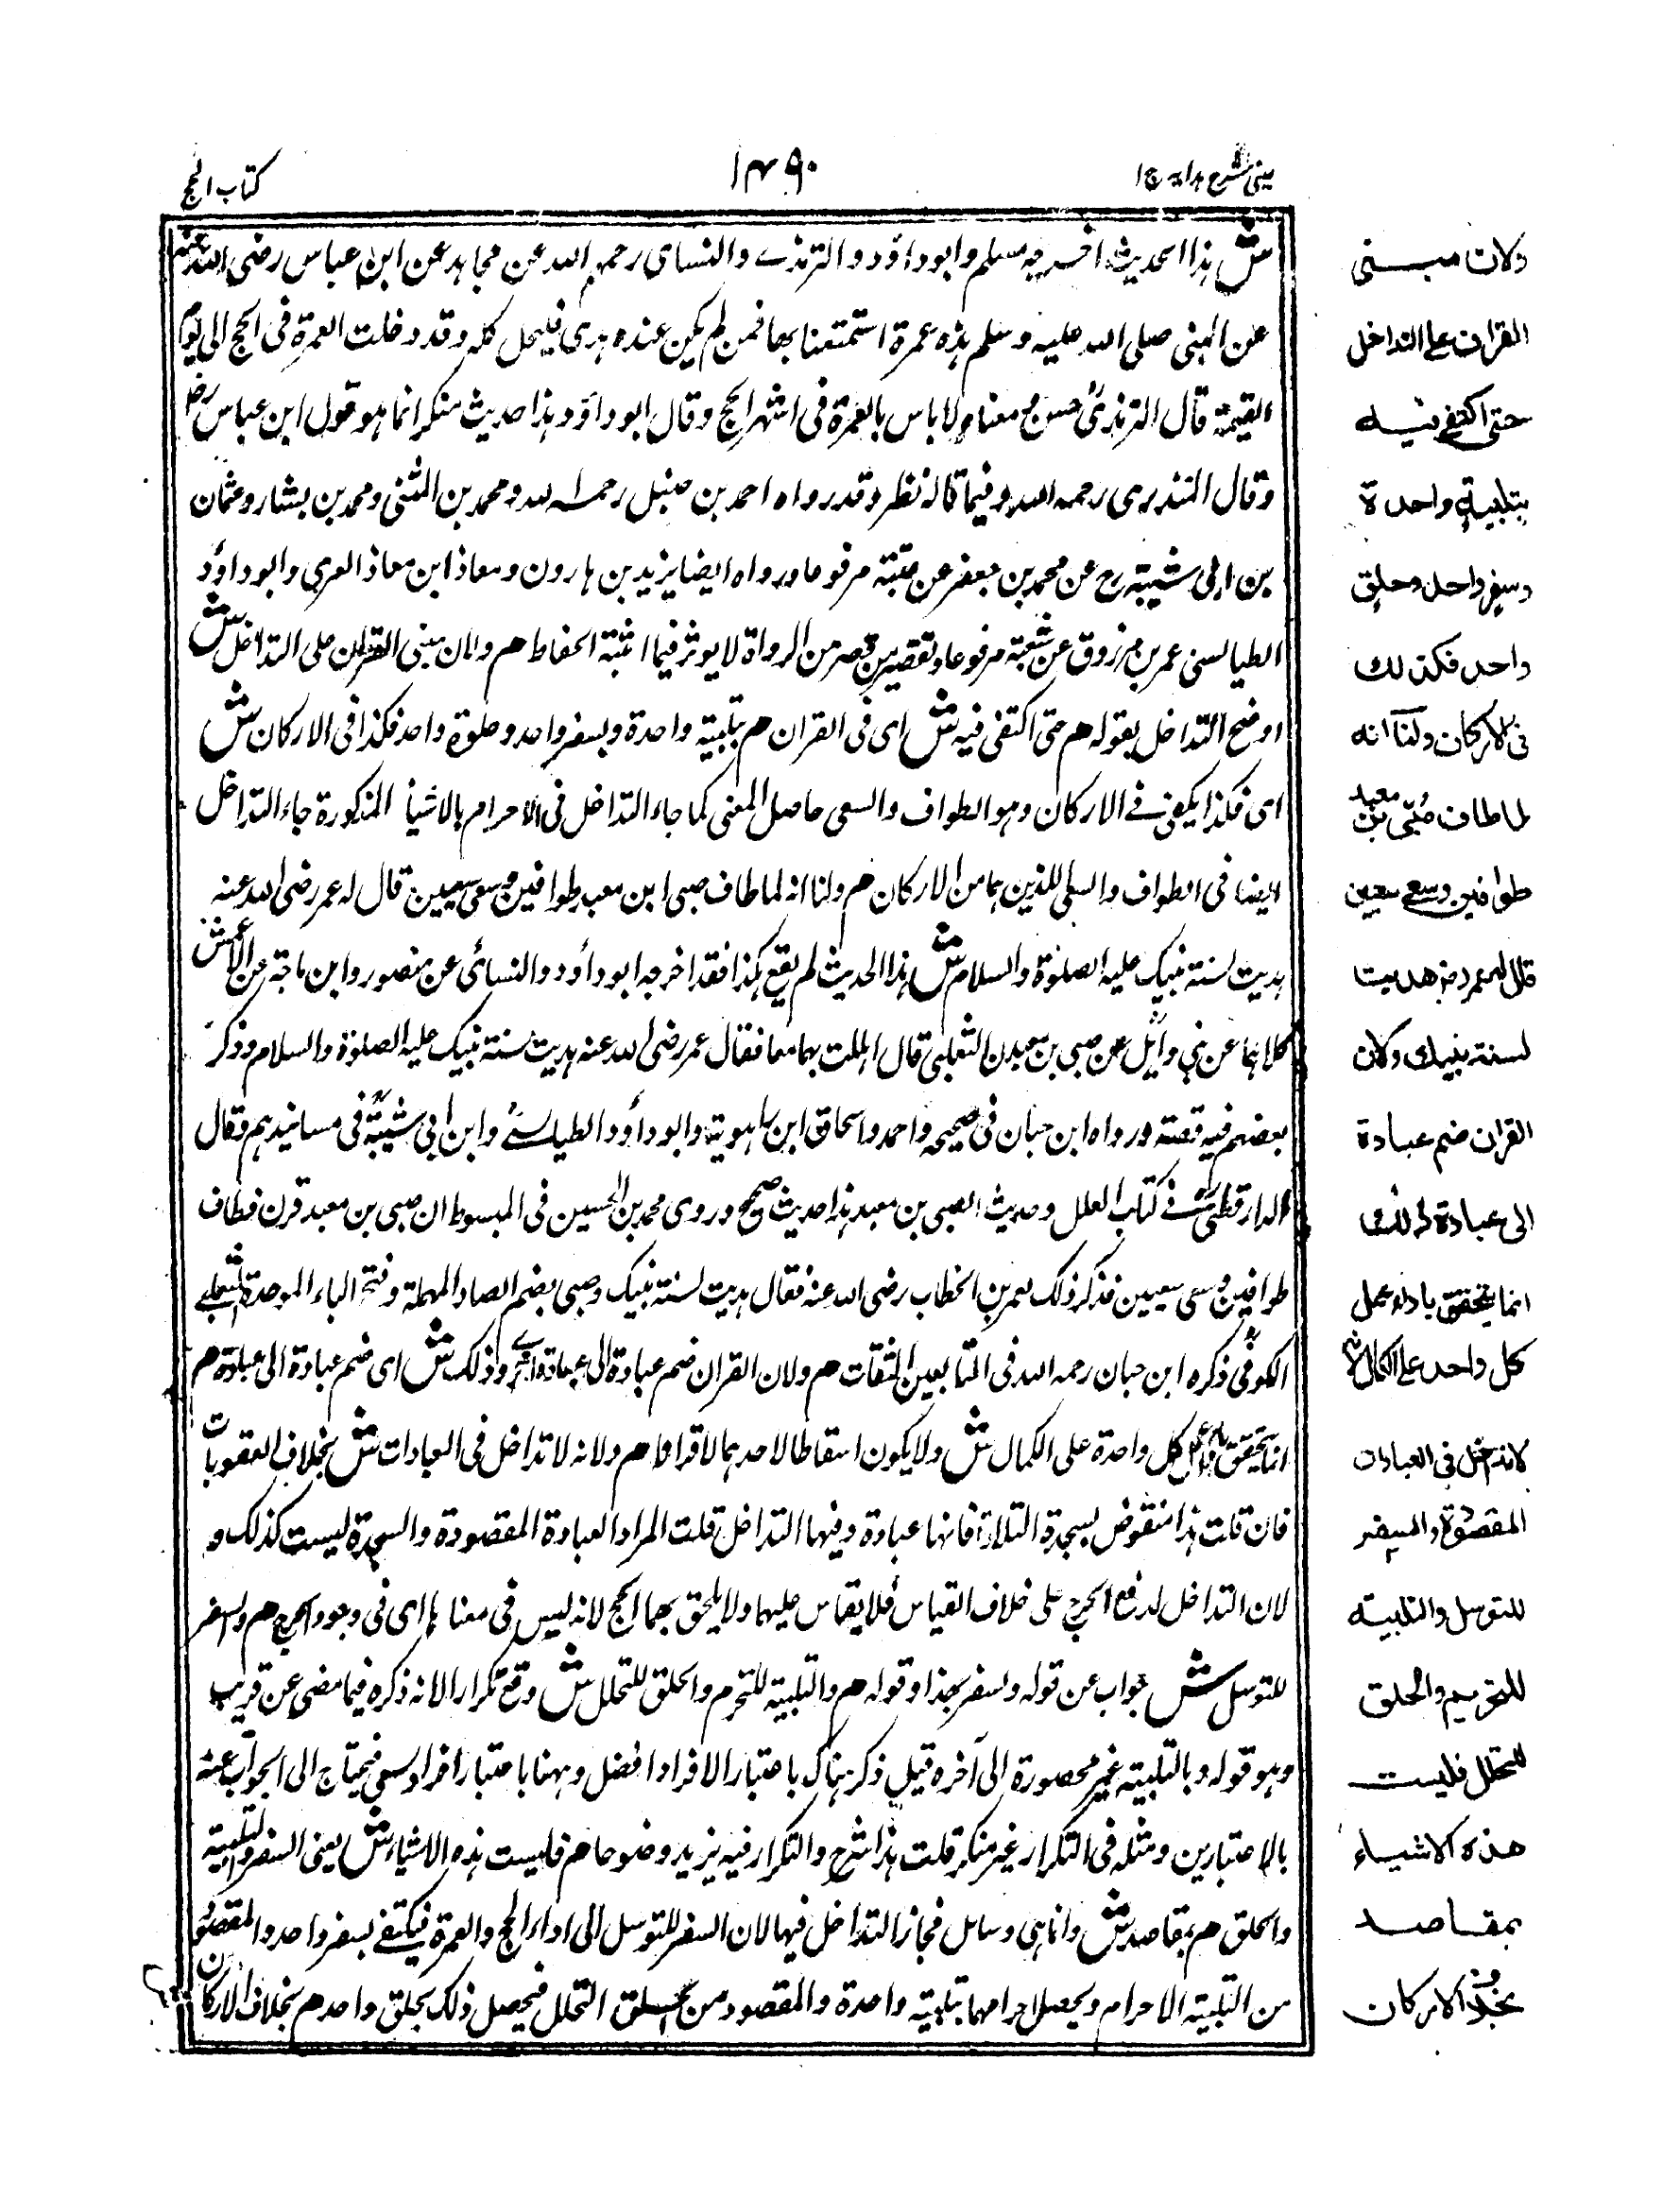 عینی شرح ہدایہ ج ۱
۱۴۹۰
کتاب الحج
ش ہذا الحدیث اخرجہ مسلم وابو داؤد والترمذے والنسای رحمہم اللہ عن مجاہد عن ابن عباس رضی اللہ عنہ
عن النبی صلی اللہ علیہ وسلم ہذہ عمرۃ استمتعنا بہا فمن لم یکن عندہ ہدی فلیحل کلہ وقد دخلت العمرۃ فی الحج الی یوم
القیمۃ قال الترمذیؒ حسن معناہ لا باس بالعمرۃ فی اشہر الحج وقال ابو داؤد ہذا حدیث منکر انما ہو قول ابن عباس رض
وقال المنذری رحمہ اللہ وفیما قالہ نظر وقد رواہ احمد بن حنبل رحمہ اللہ ومحمد بن المثنی ومحمد بن بشار وعثمان
بن ابی شیبۃ رح عن محمد بن جعفر عن مرفوعا ورواہ ایضا یزید بن ہارون ومعاذ ابن معاذ وابو داؤد
الطیالسی عمر بن مرزوق عن شعبۃ مرفوعا وتقصیر من قصر من الرواۃ لا یوثر فیما اثبتہ الحفاظ ھم ولان مبنی القران علی التداخل ش
اوضح التداخل بقولہ ھم حتی اکتفی فیہ ش ای فی القران ھم بتلبیۃ واحدۃ وبسفر واحد وحلق واحد فکذا فی الارکان ش
ای فکذا یکفی فے الارکان وہو الطواف والسعی حاصل المعنی کما جاء التداخل فی الاحرام بالاشیأ المذکورۃ جاء التداخل
ایضا فی الطواف والسعی للذین ہما من الارکان ھم ولنا انہ لما طاف صبی ابن معبد طوافین وسعی سعیین قال لہ عمر رضی اللہ عنہ
ہدیت لسنۃ نبیک علیہ الصلوۃ والسلام ش ہذا الحدیث لم یقع ہکذا فقد اخرجہ ابو داؤد والنسائی عن منصور وابن ماجۃ عن الاعمش
کلاہما عن ابی وائل عن صبی بن معبد الثعلبی قال اہللت بہما معا فقال عمر رضی اللہ عنہ ہدیت سنۃ نبیک علیہ الصلوۃ والسلام وذکر
بعضہم فیہ قصۃ ورواہ ابن حبان فی صحیحہ واحمد واسحاق ابن راہویۃ وابو داؤد الطیالسے وابن ابی شیبۃؒ فی مسانیدہم وقال
الدارقطنی فے کتاب العلل وحدیث الصبی بن معبد ہذا حدیث صحیح وروی محمد بن الحسین فی المبسوط ان صبی بن معبد قرن فطاف
طوافین وسعی سعیین فذکر ذلک لعمر بن الخطاب رضی اللہ عنہ فقال ہدیت لسنۃ نبیک وصبی بضم الصاد المہملۃ وفتح الباء الموحدۃ الثعلبے
الکوفی ذکرہ ابن حبان رحمہ اللہ فی التابعین الثقات ھم ولان القران ضم عبادۃ الی عبادۃ اخرے وذلک ش ای ضم عبادۃ الی عبادۃ ھم
انما یتحقق باداء عمل کل واحدۃ علی الکمال ش ولا یکون اسقاطا لاحدہما ھم ولانہ لا تداخل فی العبادات ش بخلاف العقوبات
فان قلت ہذا منقوض بسجدۃ التلاوۃ فانہا عبادۃ وفیہا التداخل قلت المراد العبادۃ المقصودۃ والسجدۃ لیست کذلک و
لان التداخل لدفع الحرج علی خلاف القیاس فلا یقاس علیہما ولا یلحق بہما الحج لانہ لیس فی معناہا ای فی وجود الحرج ھم والسفر
للتوسل ش جواب عن قولہ ولسفر بہذا وقولہ ھم والتلبیۃ للتحرم والحلق للتحلل ش وقع تکرارا لانہ ذکرہ فیما مضی عن قریب
وہو قولہ وبالتلبیۃ غیر محصورۃ الی آخرہ قیل ذکر ہناک باعتبار الافراد افضل وہہنا باعتبار افراد سعی فیحتاج الی الجواب عنہ
بالاعتبارین ومثلہ فی التکرار غیر منکر قلت ہذا شرح والتکرار فیہ یزید وضوحا ھم فلیست ہذہ الاشیاء ش یعنی السفر والتلبیۃ
والحلق ھم بمقاصد ش وانما ہی وسائل فجاز التداخل فیہا لان السفر للتوسل الی اداء الحج والعمرۃ فیکتفے بسفر واحد والمقصود
من التلبیۃ الاحرام ویحصل احرامہما بتلبیۃ واحدۃ والمقصود من الحلق التحلل فیحصل ذلک بحلق واحد ھم بخلاف الارکان
ولان مبنی
القران علی التداخل
حتی اکتفی فیہ
بتلبیۃ واحدۃ
وسفر واحد وحلق
واحد فکذلک
فی الارکان ولنا انہ
لما طاف صبی بن معبد
طوافین وسعی سعیین
قال لہ عمر رض ھدیت
لسنۃ نبیک ولان
القران ضم عبادۃ
الی عبادۃ وذلک
انما یتحقق باداء عمل
کل واحد علی الکمال ولانہ
لا تداخل فی العبادات
المقصودۃ والسفر
للتوسل والتلبیۃ
للتحریم والحلق
للتحلل فلیست
ھذہ الاشیاء
بمقاصد
بخلاف الارکان